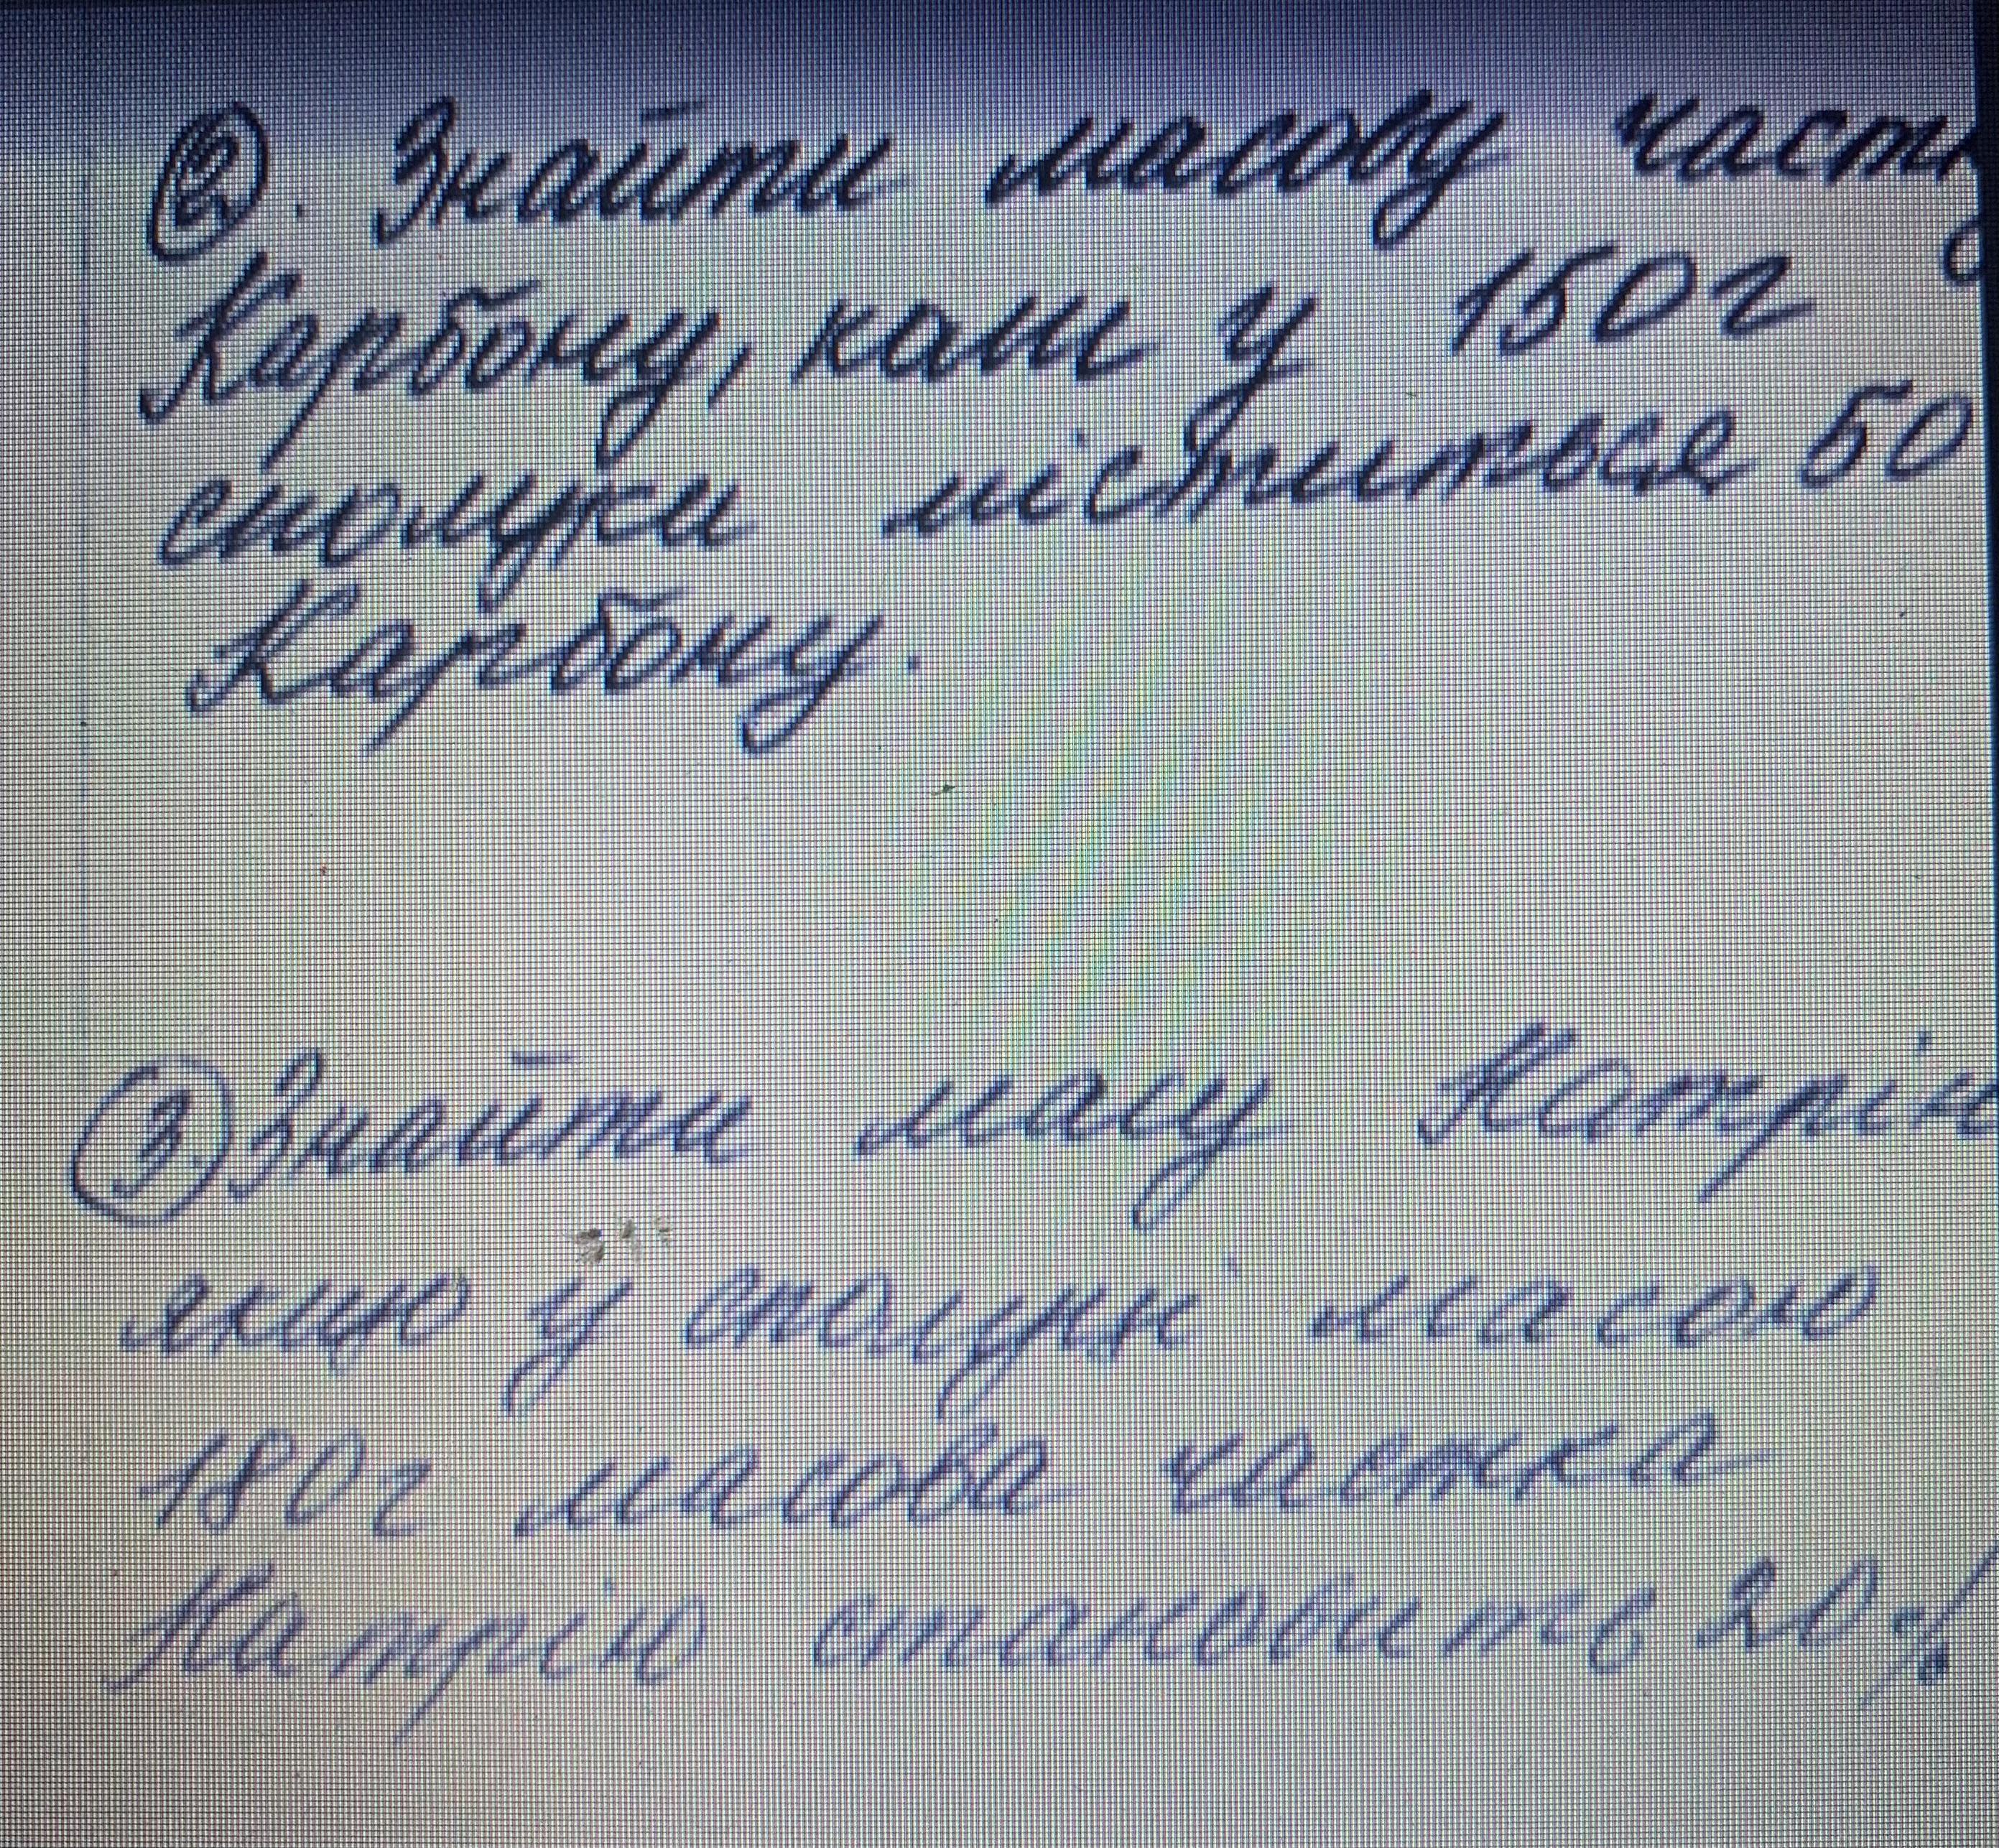 2. Знайти масову част
Карбону, коли у 150г
сполуки міститься 50
Карбону.
3. Знайти масу Натрію
якщо у сполуки масою
180г масова частка
Натрію становить 20%